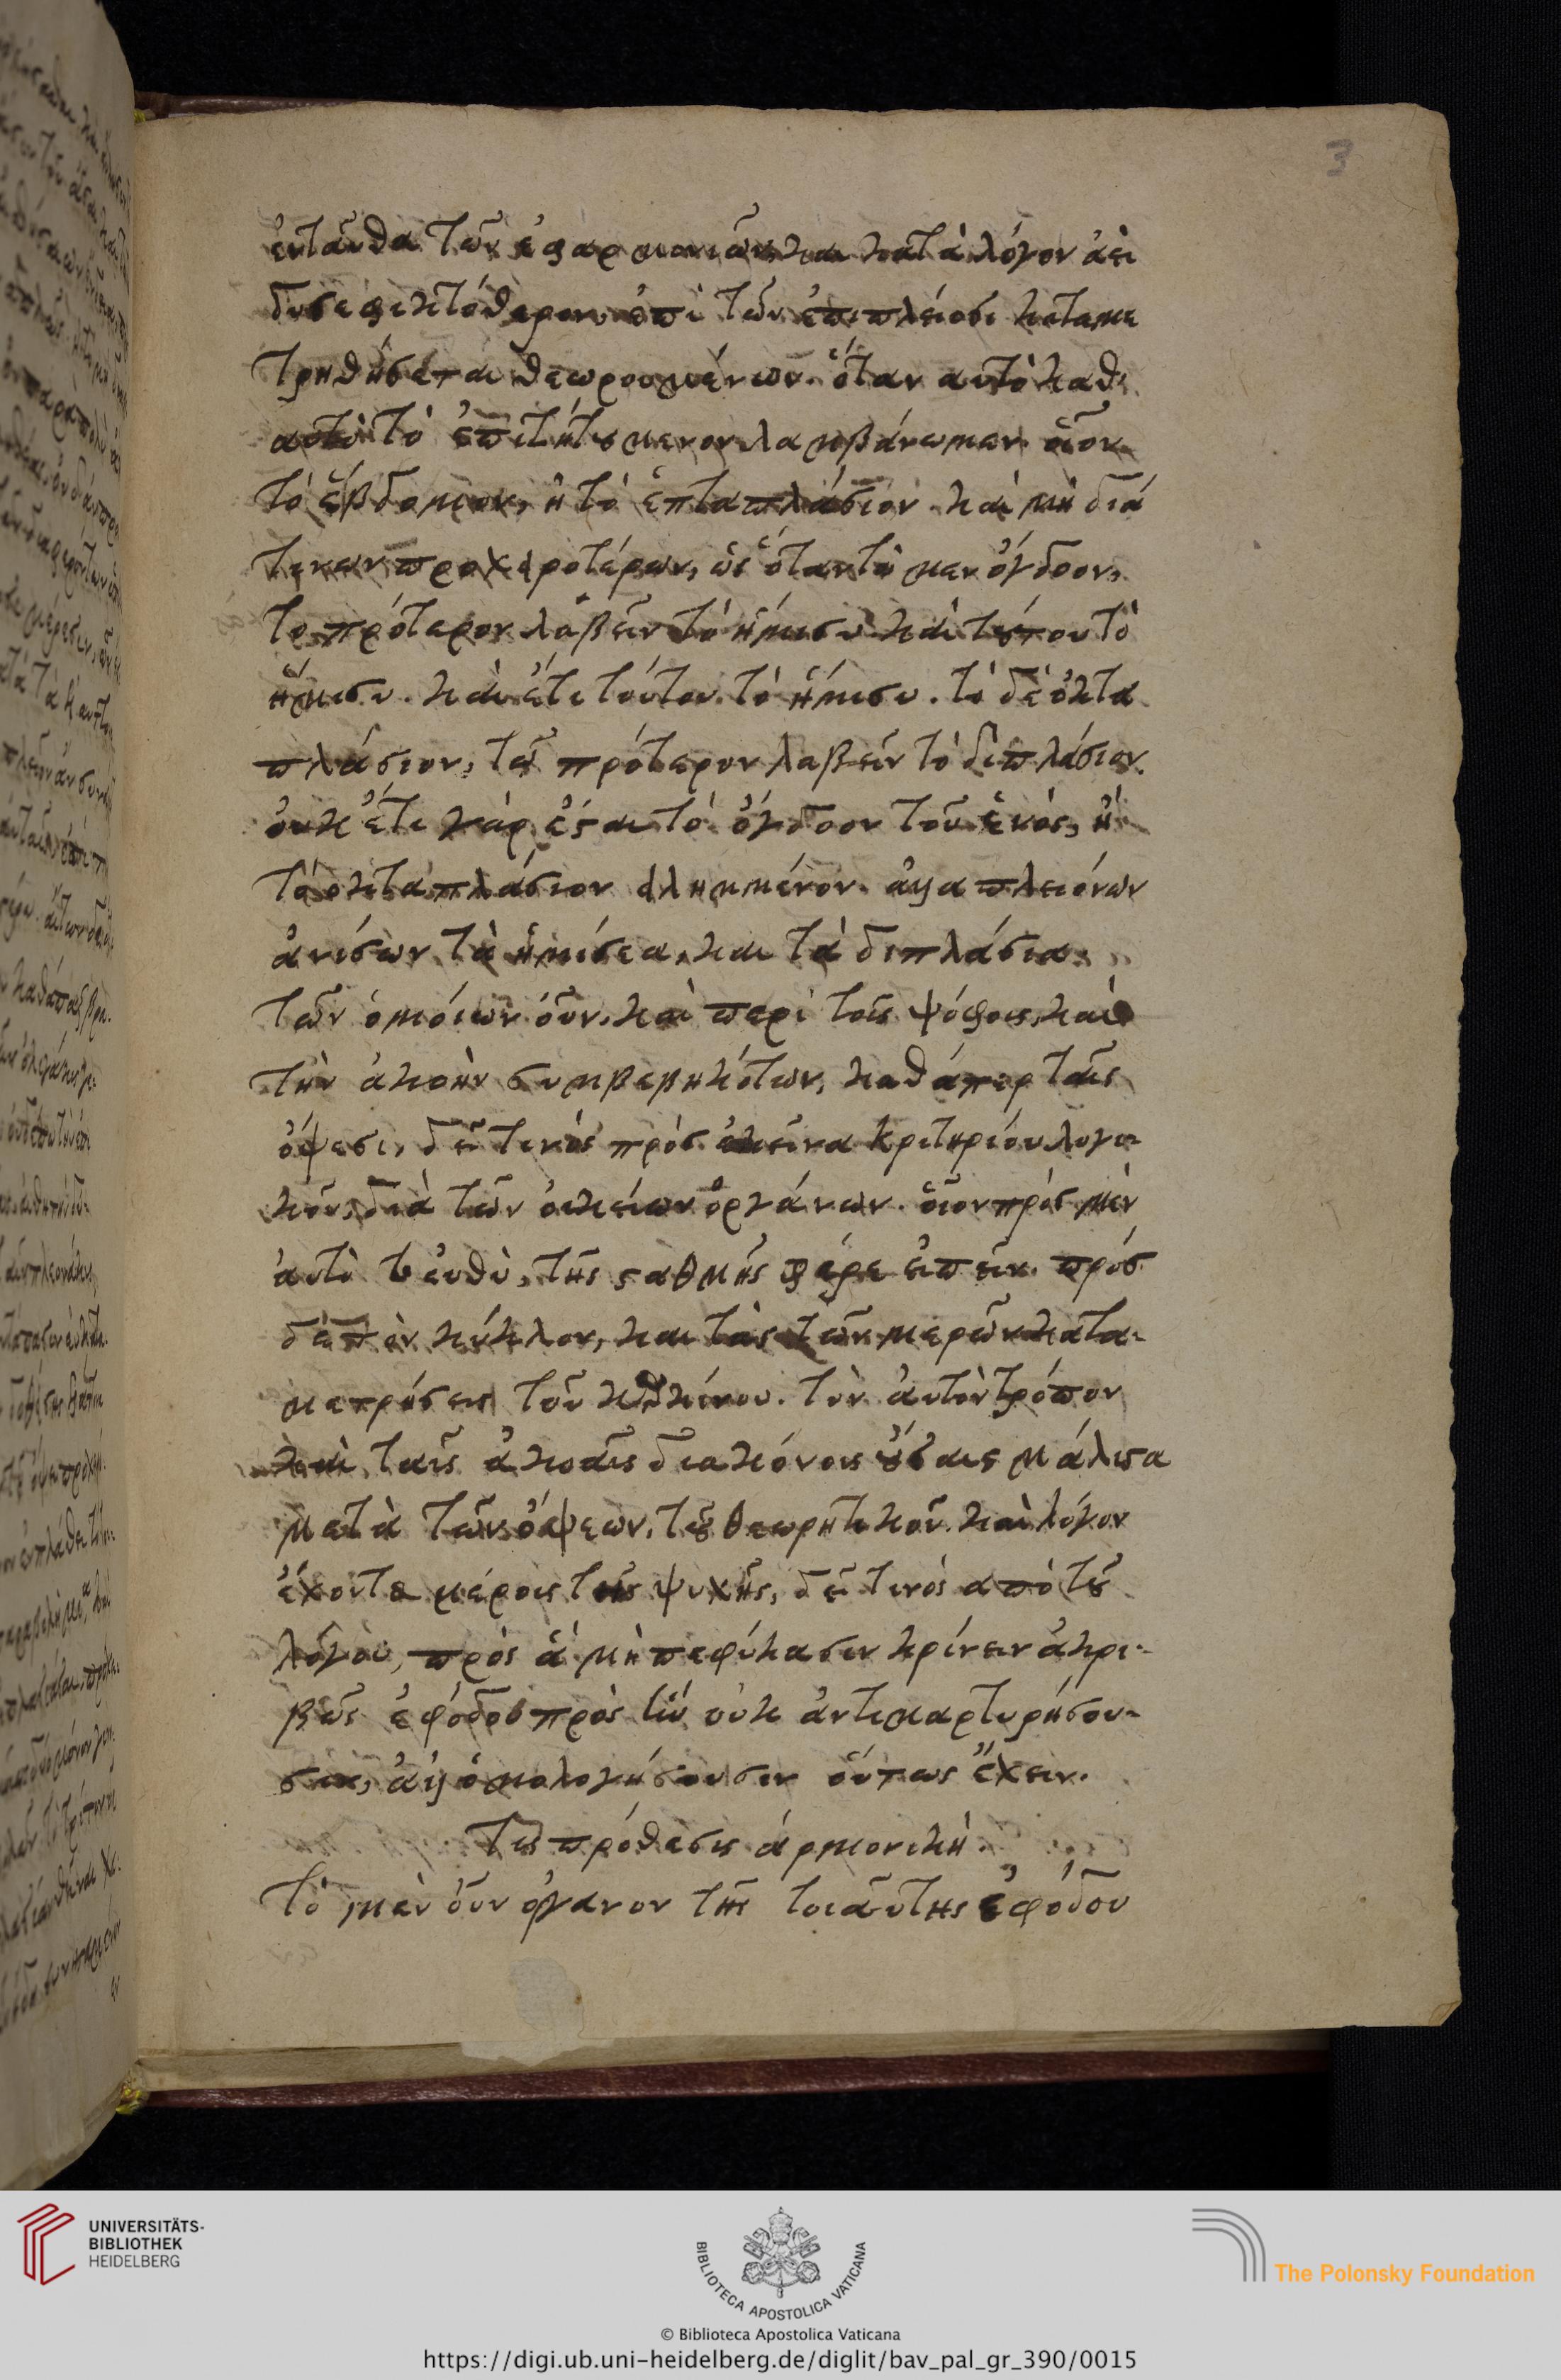 3
ἐνταῦθα τῶν ἐφαρμονιῶν, και κατὰ λόγον ἀεὶ
δυσεφικτότερον ἐπὶ τῶν ἐπιπλείοσι καταμε
τρηθήσεται θεωρουμένων. ὅταν αυτὸ καθ
αυτὸ τὸ ἐπιτήτμενον λαμβάνωμεν. οἷον
τὸ ἕβδομον, ἢ τὸ ἑπταπλάσιον. καὶ μὴ διά
τινων προχειροτέρων, ὡς ὅταν τὸ μεν ὄγδοον,
το πρότερον λαβεῖν τὸ ἥμισυ καὶ τούτου τὸ
ἥμισυ. καὶ ἔτι τούτου τὸ ἥμισυ. τὸ δὲ ὀκτα
πλάσιον, τῶ πρότερον λαβεῖν τὸ διπλάσιον.
ὀυκ ἔτι γὰρ ἔσται τὸ ὄγδοον τοῦ ἑνός, ἢ
τὸ ὀκταπλάσιον εἰλημμένον. ἀλλα πλειόνων
ἀνίσων τὰ ἡμίσεα, και τὰ διπλάσια.
τῶν ὁμοίων οὖν. καὶ περὶ τοῖς ψόφοις, καὶ
τὴν ἀκοὴν συμβεβηκότων, καθάπερ ταῖς
ὄψεσι, δεῖ τινὸς πρὸς ἐκεῖνα κριτηρίου λογι-
κοῦ, διὰ τῶν ὀικείων ὀργάνων. οἷον πρὸς μὲν
ἀυτὸ τὸ ευθὺ, τῆς σταθμῆς φέρε ειπεῖν. πρὸς
δὲ τὸν κύκλον, και τὰς τῶν μερῶν κατα-
μετρήσεις τοῦ καρκίνου. τὸν ἀυτὸν τρόπον
καὶ ταῖς ἀκοαῖς διακόνοις οὔσαις μάλιστα
μετὰ τῶν ὄψεων, τοῦ θεωρητικοῦ. καὶ λόγον
ἔχοντος μέροις τῆς ψυχῆς, δεῖ τινός απὸ τοῦ
λόγου, πρὸς ἃ μὴ πεφύκασιν κρίνειν ἀκρι-
βῶς ἐφόδου πρὸς ἣν οὐκ ἀντιμαρτυρήσου-
σιν, ἀλλ ὁμολογήσουσιν οὕτως ἔχειν.
Τίς πρόθεσις ἁρμονική.
Τὸ μὲν ὄυν ὄργανον τῆς τοιαύτης ἐφόδου
UNIVERSITÄTS-
BIBLIOTHEK
HEIDELBERG
BIBLIOTECA APOSTOLICA VATICANA
The Polonsky Foundation
© Biblioteca Apostolica Vaticana
https://digi.ub.uni-heidelberg.de/diglit/bav_pal_gr_390/0015